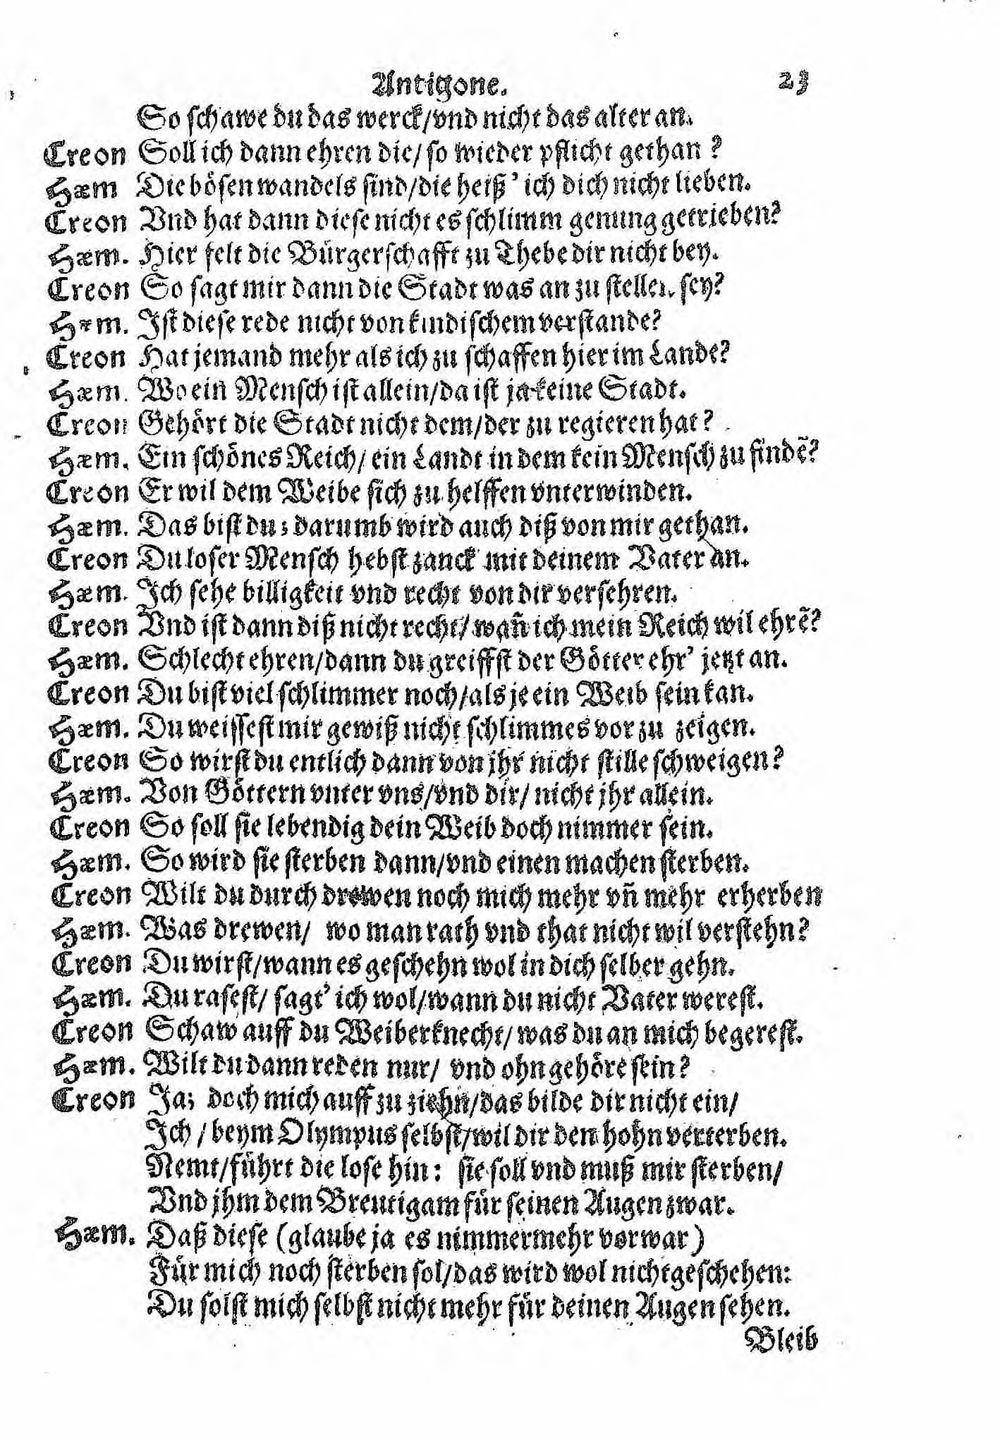 Antigone. 23
So schawe du das werck/vnd nicht das alter an.
Creon Soll ich dann ehren die/ so wieder pflicht gethan ?
Hæm Die bösen wandels sind/die heiß' ich dich nicht lieben.
Creon Vnd hat dann diese nicht es schlimm genung getrieben?
Hæm. Hier felt die Bürgerschafft zu Thebe dir nicht bey.
Creon So sagt mir dann die Stadt was an zu stellen sey?
Hæm. Ist diese rede nicht von kindischem verstande?
Creon Hat jemand mehr als ich zu schaffen hier im Lande?
Hæm. Wo ein Mensch ist allein/da ist ja keine Stadt.
Creon Gehört die Stadt nicht dem/der zu regieren hat ?
Hæm. Ein schönes Reich/ ein Landt in dem kein Mensch zu findē?
Creon Er wil dem Weibe sich zu helffen vnterwinden.
Hæm. Das bist du; darumb wird auch diß von mir gethan.
Creon Du loser Mensch hebst zanck mit deinem Vater an.
Hæm. Ich sehe billigkeit vnd recht von dir versehren.
Creon Vnd ist dann diß nicht recht/ wañ ich mein Reich wil ehrē?
Hæm. Schlecht ehren/dann du greiffst der Götter ehr' jetzt an.
Creon Du bist viel schlimmer noch/als je ein Weib sein kan.
Hæm. Du weissest mir gewiß nicht schlimmes vor zu zeigen.
Creon So wirst du entlich dann von jhr nicht stille schweigen?
Hæm. Von Göttern vnter vns/vnd dir/ nicht jhr allein.
Creon So soll sie lebendig dein Weib doch nimmer sein.
Hæm. So wird sie sterben dann/vnd einen machen sterben.
Creon Wilt du durch drewen noch mich mehr vñ mehr erherben
Hæm. Was drewen/ wo man rath vnd that nicht wil verstehn?
Creon Du wirst/wann es geschehn wol in dich selber gehn.
Hæm. Du rasest/ sagt' ich wol/wann du nicht Vater werest.
Creon Schaw auff du Weiberknecht/ was du an mich begerest.
Hæm. Wilt du dann reden nur/ vnd ohn gehöre sein?
Creon Ja; doch mich auff zu ziehn/das bilde dir nicht ein/
Ich / beym Olympus selbst/wil dir den hohn verterben.
Nemt/führt die lose hin: sie soll vnd muß mir sterben/
Vnd jhm dem Breutigam für seinen Augen zwar.
Hæm. Daß diese (glaube ja es nimmermehr vorwar)
Für mich noch sterben sol/das wird wol nicht geschehen:
Du solst mich selbst nicht mehr für deinen Augen sehen.
Bleib